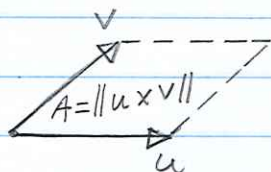 V
A=||u×v||
u